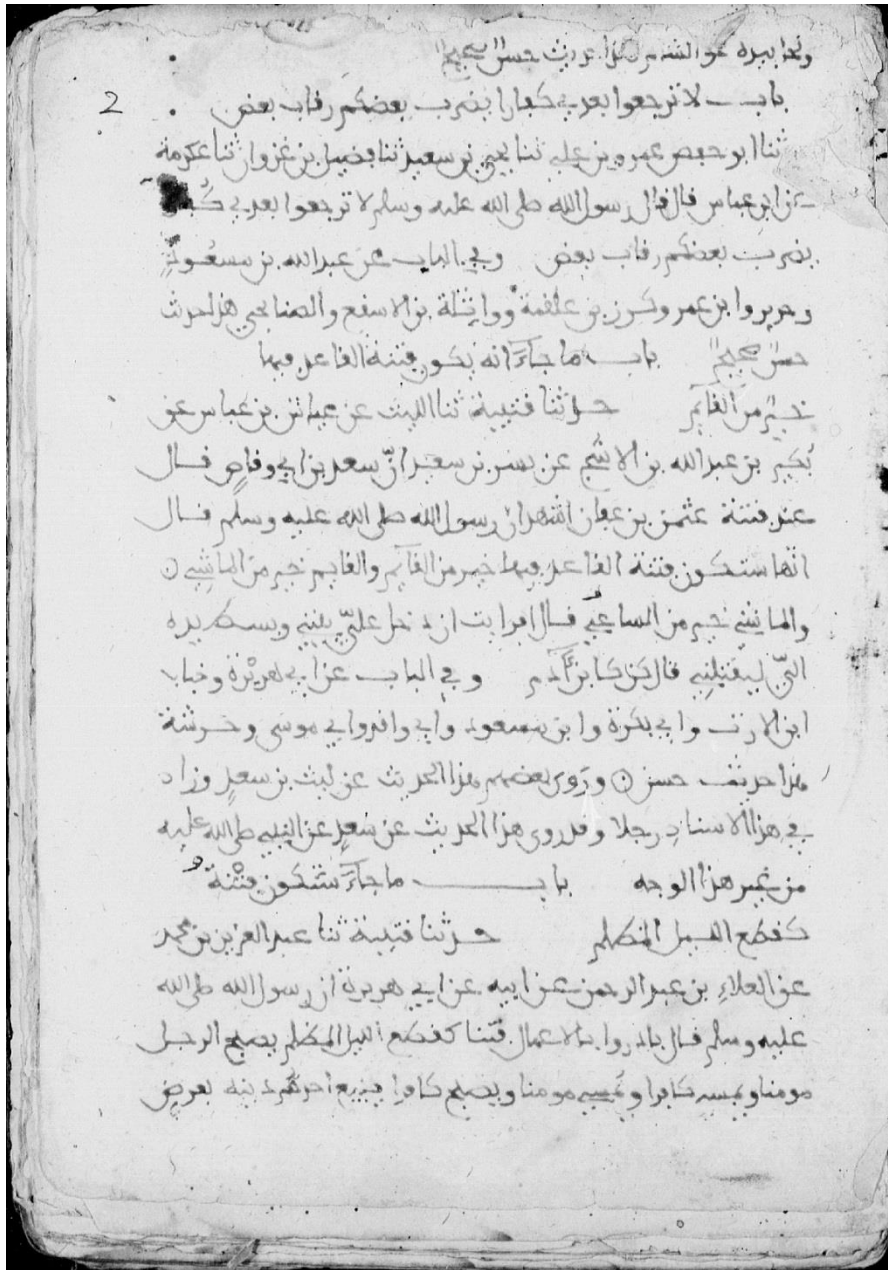 ونحا بيده نحو الشام هذا حديث حسن صحيح
2
باب لا ترجعوا بعدي كفارا يضرب بعضكم رقاب بعض
ثنا ابو حفص عمرو بن علي ثنا يحيى بن سعيد ثنا فضيل بن غزوان ثنا عكرمة
عن ابن عباس قال قال رسول الله صلى الله عليه وسلم لا ترجعوا بعدي كفارا
يضرب بعضكم رقاب بعض وفي الباب عن عبد الله بن مسعود
وجرير وابن عمر وكرز بن علقمة وواثلة بن الاسقع والصنابحي هذا حديث
حسن صحيح باب ما جاء انه يكون فتنة القاعد فيها
خير من القايم حدثنا قتيبة ثنا الليث عن عياش بن عباس عن
بكير بن عبد الله بن الاشج عن بسر بن سعيد ان سعد بن ابي وقاص قال
عند فتنة عثمن بن عفان اشهد ان رسول الله صلى الله عليه وسلم قال
انها ستكون فتنة القاعد فيها خير من القايم والقايم خير من الماشي
والماشي خير من الساعي قال افرايت ان دخل علي بيتي وبسط يده
الي ليقتلني قال كن كابن ءادم وفي الباب عن ابي هريرة وخباب
ابن الارت وابي بكرة وابن مسعود وابي واقد وابي موسى وخرشة
هذا حديث حسن وروى بعضهم هذا الحديث عن ليث بن سعد وزاد
في هذا الاسناد رجلا وقد روي هذا الحديث عن سعد عن النبي صلى الله عليه
من غير هذا الوجه باب ما جاء ستكون فتنة
كقطع الليل المظلم حدثنا قتيبة ثنا عبد العزيز بن محمد
عن العلاء بن عبد الرحمن عن ابيه عن ابي هريرة ان رسول الله صلى الله
عليه وسلم قال بادروا بالاعمال فتنا كقطع الليل المظلم يصبح الرجل
مومنا ويمسي كافرا ويمسي مومنا ويصبح كافرا يبيع احدكم دينه بعرض